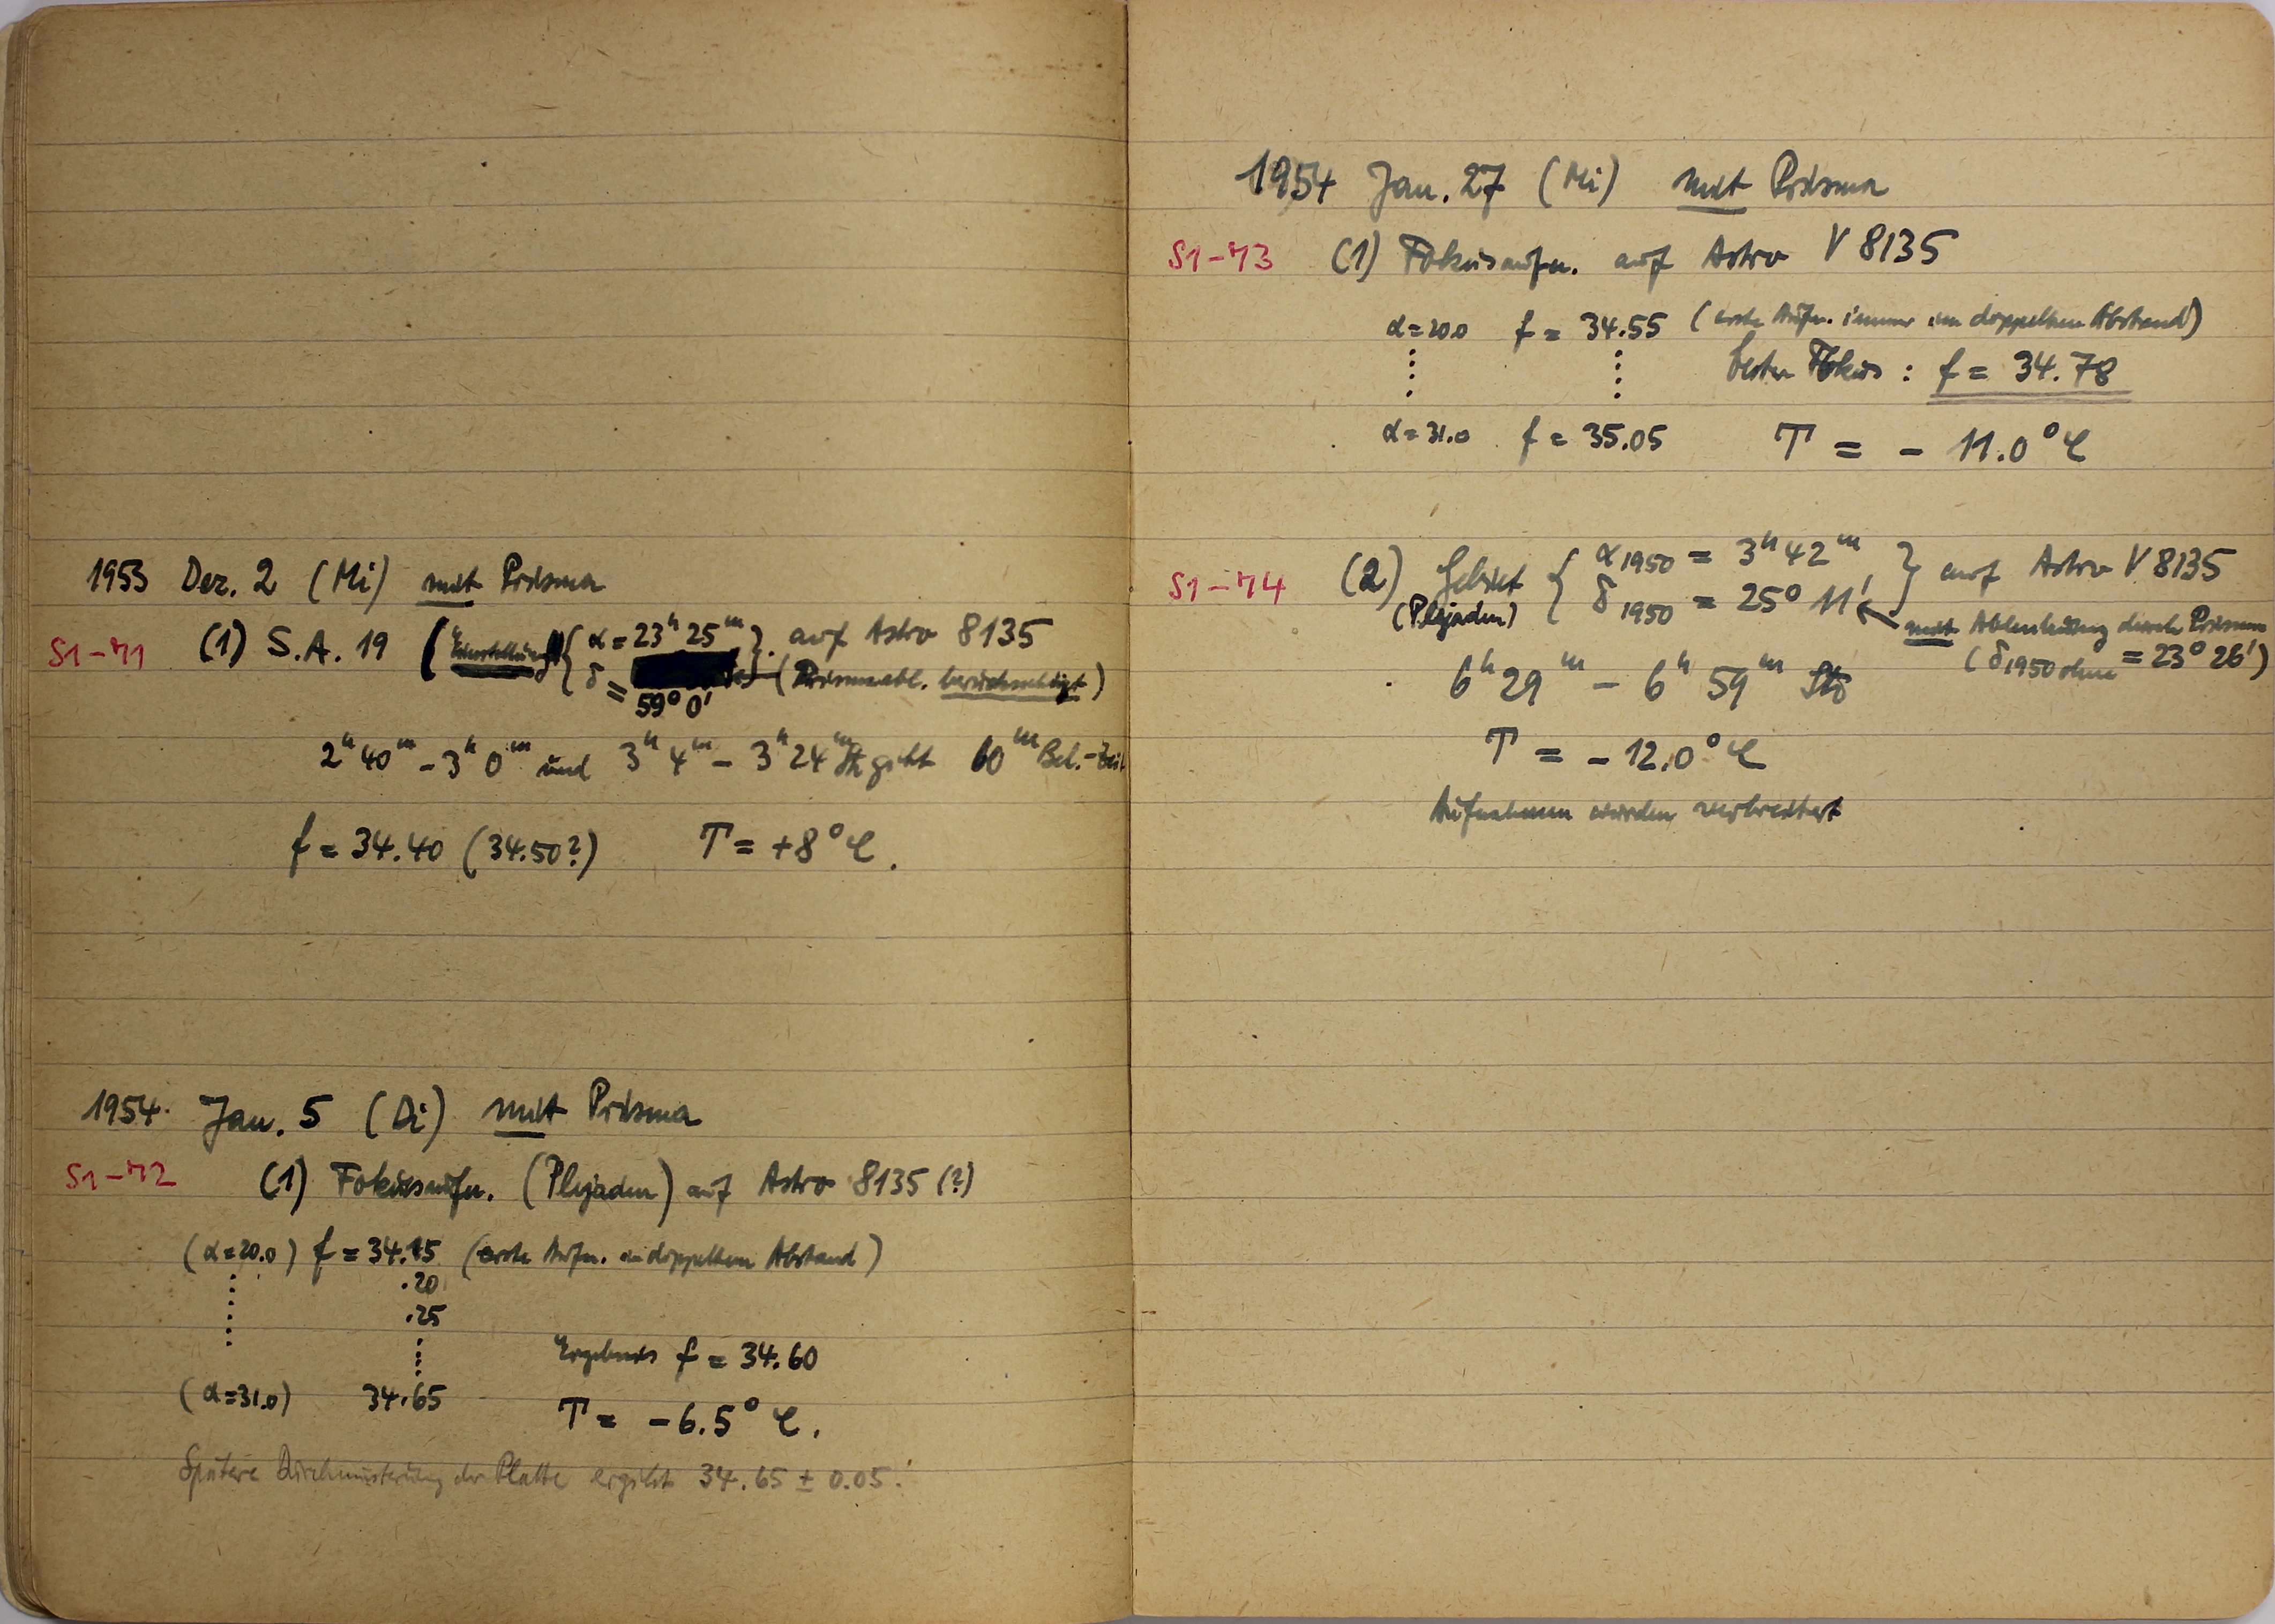 1953 Dez. 2 (Mi) mit Prisma
S1-71 (1) S.A. 19 (Einstellung) { α = 23ʰ 25ᵐ } auf Astro 8135
δ = 59° 0' (Prismenabl. berücksichtigt)
2ʰ 40ᵐ – 3ʰ 0ᵐ und 3ʰ 4ᵐ – 3ʰ 24ᵐ gibt 60ᵐ Bel.-Zeit
f = 34.40 (34.50?) T = +8°C.
1954 Jan. 5 (Di) mit Prisma
S1-72 (1) Fokusaufn. (Plejaden) auf Astro 8135 (?)
(α=20.0) f = 34.15 (erste Aufn. in doppeltem Abstand)
.20
.25
Ergebnis f = 34.60
(α=31.0) 34.65
T = -6.5°C.
Spätere Durchmusterung der Platte ergibt 34.65 ± 0.05.
1954 Jan. 27 (Mi) mit Prisma
S1-73 (1) Fokusaufn. auf Astro V 8135
α=20.0 f = 34.55 (erste Aufn. immer im doppelten Abstand)
bester Fokus : f = 34.78
α=31.0 f = 35.05 T = - 11.0°C
S1-74 (2) Gebiet { α1950 = 3ʰ 42ᵐ } auf Astro V 8135
(Plejaden) δ1950 = 25° 11' ← mit Ablenkung durch Prisma
(δ1950 ohne = 23° 26')
6ʰ 29ᵐ – 6ʰ 59ᵐ
T = -12.0°C
Aufnahmen wurden verbreitert